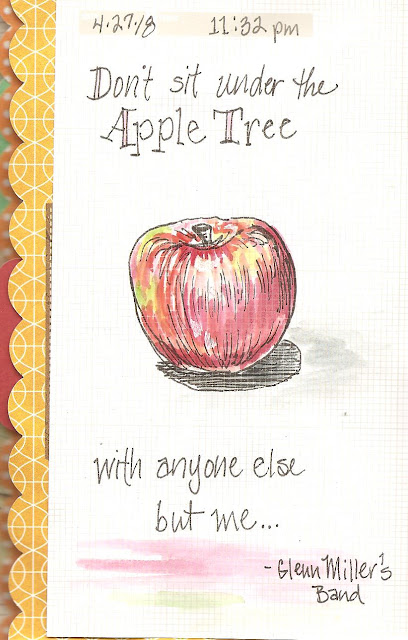 4.27.18 11:32 pm
Don't sit under the
Apple Tree
with anyone else
but me...
- Glenn Miller's
Band